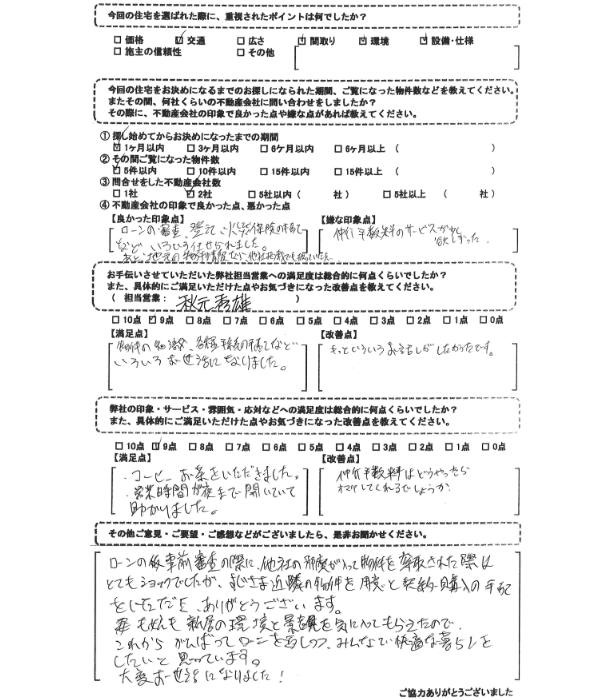 今回の住宅を選ばれた際に、重視されたポイントは何でしたか？
□ 価格 ☑ 交通 □ 広さ ☑ 間取り ☑ 環境 ☑ 設備・仕様
□ 施主の信頼性 □ その他
今回の住宅をお決めになるまでのお探しになられた期間、ご覧になった物件数などを教えてください。
またその間、何社くらいの不動産会社に問い合わせをしましたか？
その際に、不動産会社の印象で良かった点や嫌な点があれば教えてください。
① 探し始めてからお決めになったまでの期間
☑ 1ヶ月以内 □ 3ヶ月以内 □ 6ヶ月以内 □ 6ヶ月以上 （ ）
② その間ご覧になった物件数
☑ 5件以内 □ 10件以内 □ 15件以内 □ 15件以上 （ ）
③ 問合せをした不動産会社数
□ 1社 ☑ 2社 □ 5社以内（ 社） □ 5社以上（ 社）
④ 不動産会社の印象で良かった点、悪かった点
【良かった印象点】 【嫌な印象点】
ローンの審査、登記、火災保険の手配
など いろいろ任せられました。
仲介手数料のサービスが
欲しかった。
お手伝いさせていただいた弊社担当営業への満足度は総合的に何点くらいでしたか？
また、具体的にご満足いただけた点やお気づきになった改善点を教えてください。
（ 担当営業： 秋元秀雄 ）
□ 10点 ☑ 9点 □ 8点 □ 7点 □ 6点 □ 5点 □ 4点 □ 3点 □ 2点 □ 1点 □ 0点
【満足点】 【改善点】
物件の
いろいろお世話になりました。
もっといろいろお話しがしたかったです。
弊社の印象・サービス・雰囲気・応対などへの満足度は総合的に何点くらいでしたか？
また、具体的にご満足いただけた点やお気づきになった改善点を教えてください。
□ 10点 ☑ 9点 □ 8点 □ 7点 □ 6点 □ 5点 □ 4点 □ 3点 □ 2点 □ 1点 □ 0点
【満足点】 【改善点】
・コーヒー お茶をいただきました。
・営業時間が夜まで開いていて
助かりました。
仲介手数料はどうやったら
オマケしてくれるでしょうか
その他ご意見・ご要望・ご感想などがございましたら、是非お聞かせください。
ローンの仮事前審査の際に、他社の 入って物件を 取された際は
とてもショックでしたが、 近隣の物件を用意と契約・購入の手配
をいただき、ありがとうございます。
の環境と景を気に入ってもらえたので、
これから がんばってローンを しつつ、みんなで快適な暮らしを
したいと思っています。
大変お世話になりました！
ご協力ありがとうございました